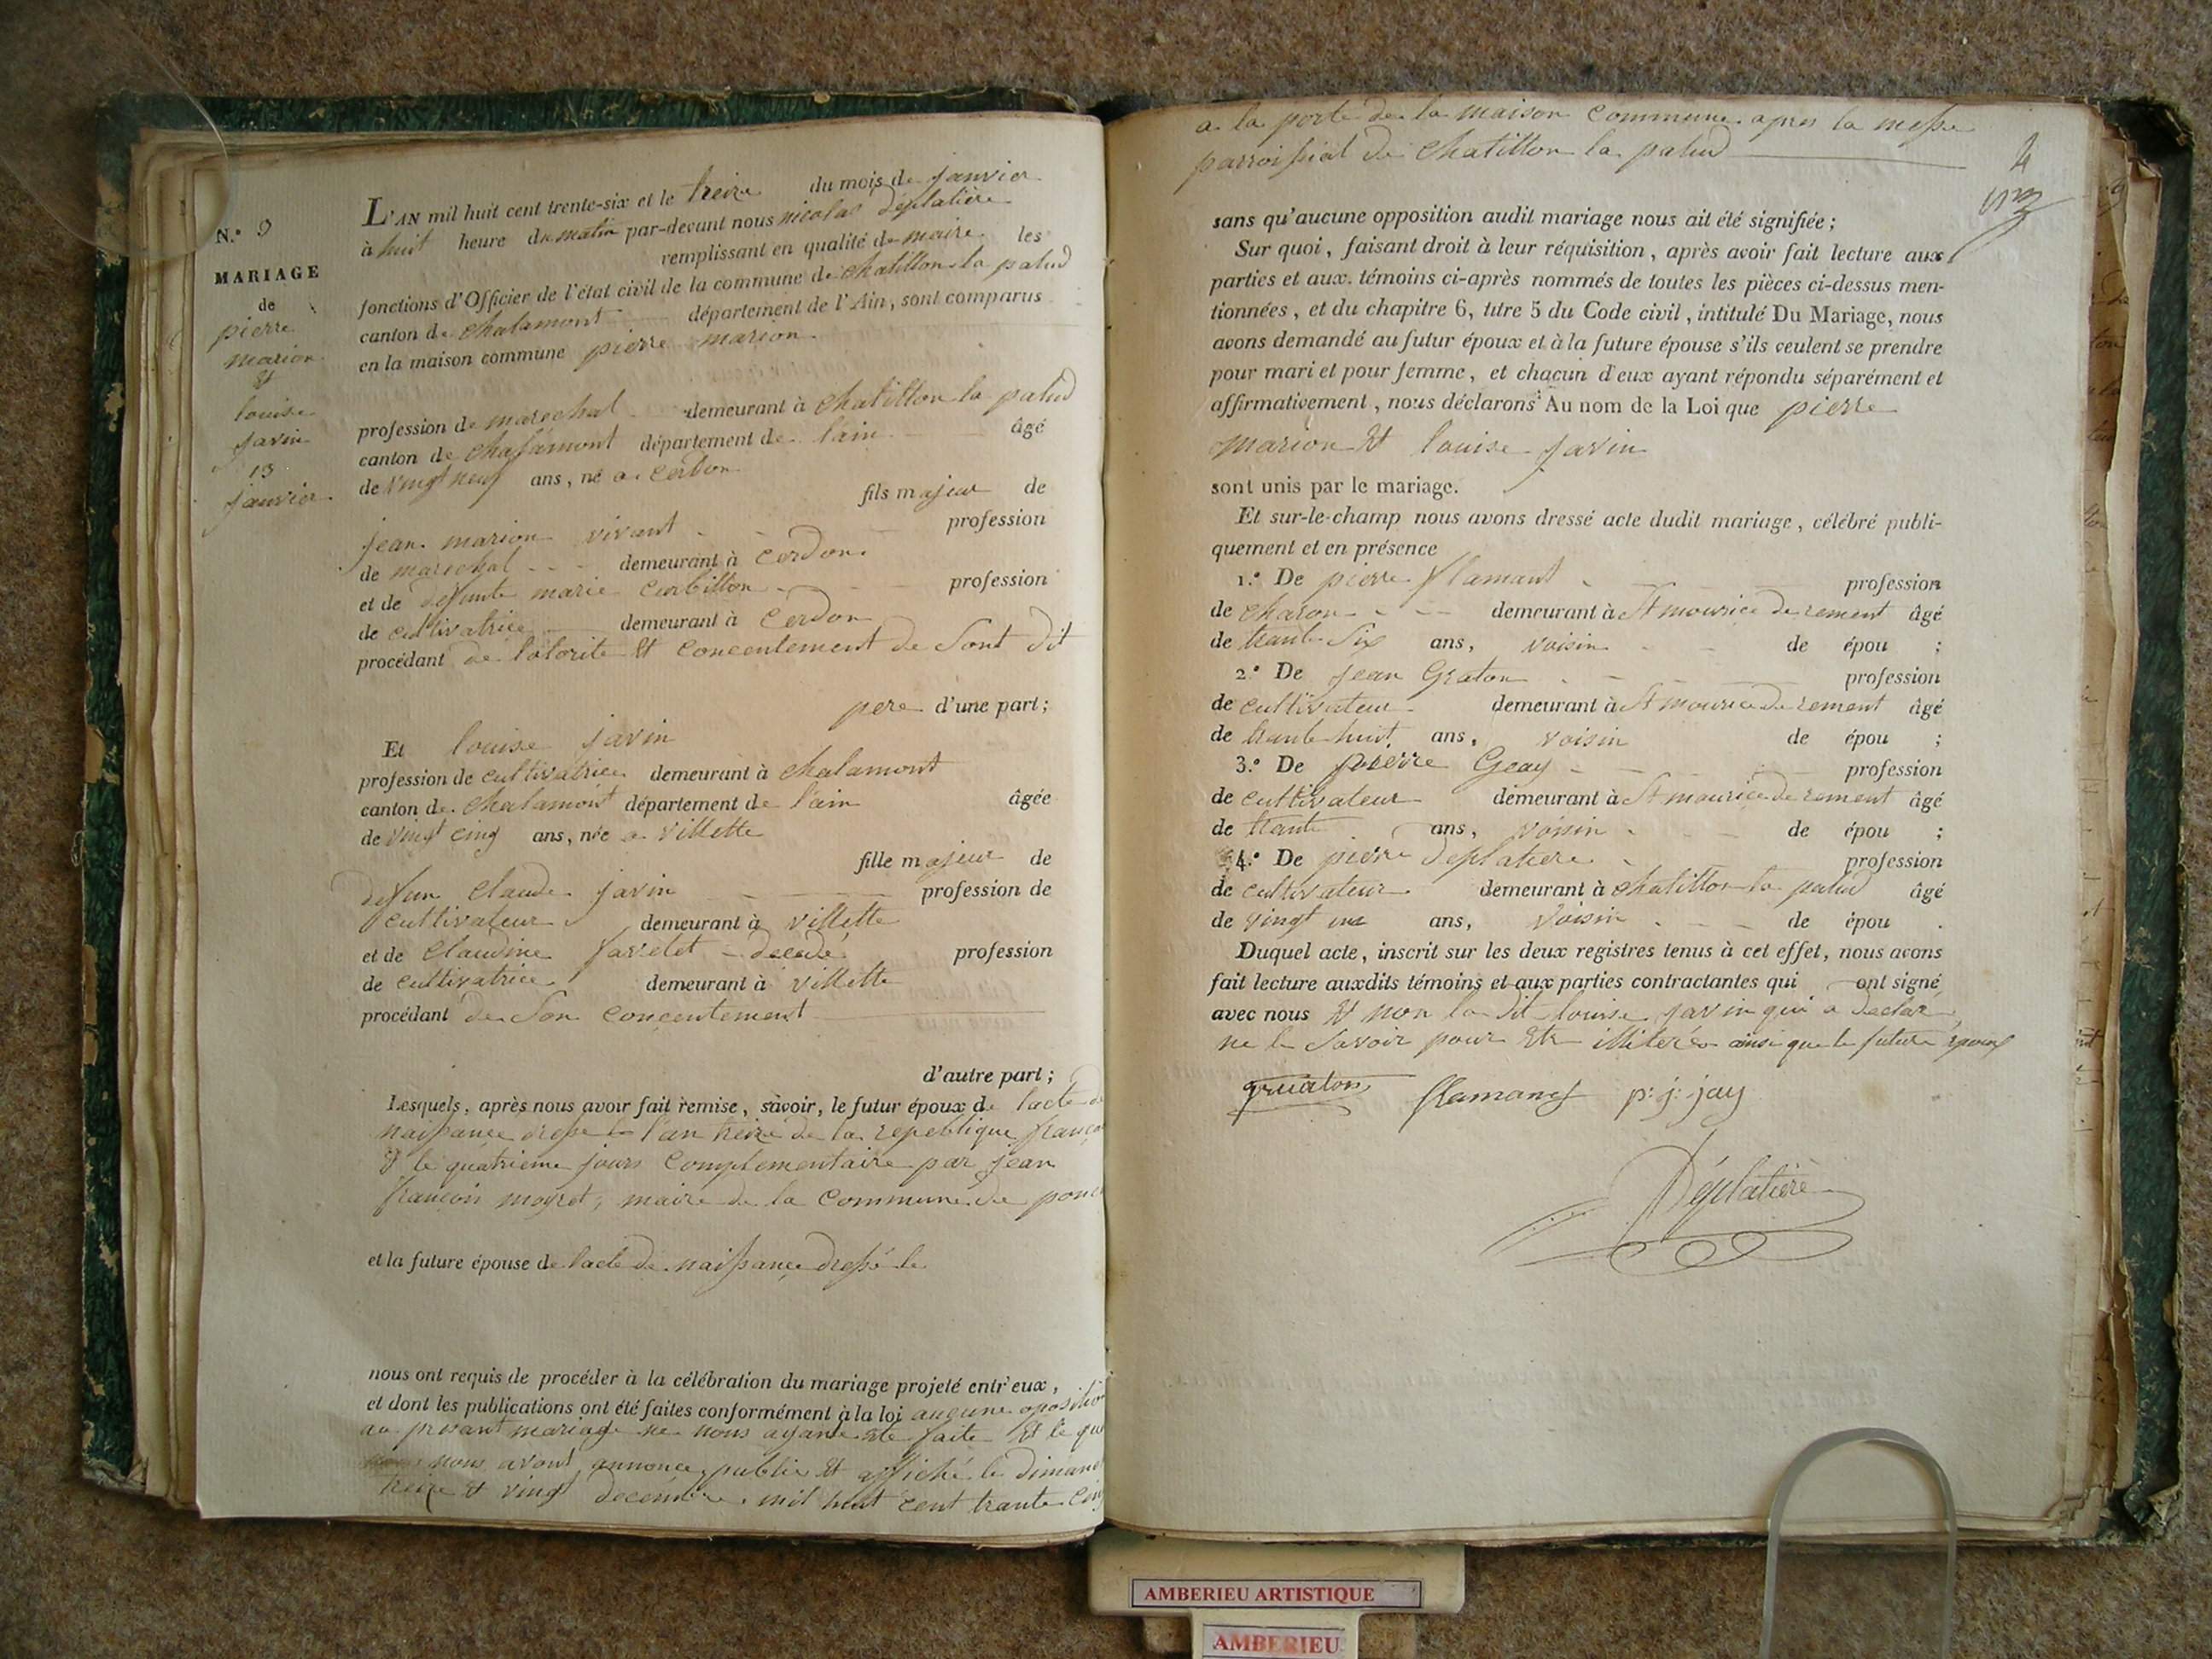 N.° 3
MARIAGE
de
pierre
marion
et
louise
javin
13
janvier
L'AN mil huit cent trente-six et le treize du mois de janvier
à huit heure du matin par-devant nous nicolas déplatière
remplissant en qualité de maire les
fonctions d'Officier de l'état civil de la commune de chatillon la palud
canton de chalamont département de l'Ain, sont comparus
en la maison commune pierre marion
profession de marechal demeurant à chatillon la palud
canton de chalamont département de l'ain âgé
de vingt neuf ans, né a cerdon
fils majeur de
jean marion vivant profession
de marechal demeurant à cerdon
et de defunte marie corbillon profession
de cultivatrice demeurant à cerdon
procédant de lotorite et concentement de sont dit
pere d'une part;
Et louise javin
profession de cultivatrice demeurant à chalamont
canton de chalamont département de l'ain âgée
de vingt cinq ans, née a villette
fille majeur de
defun claude javin profession de
cultivateur demeurant à villette
et de claudine favelet decedé profession
de cultivatrice demeurant à villette
procédant de son concentement
d'autre part;
Lesquels, après nous avoir fait remise, savoir, le futur époux de lacte de
naissance dressé l'an treize de la republique
& le quatrieme jours complementaire par jean
françois moyret, maire de la commune de
et la future épouse de lacte de naissance dressé le
nous ont requis de procéder à la célébration du mariage projeté entr'eux,
et dont les publications ont été faites conformément à la loi aucune oposition
au presant mariage ne nous ayant ete faite et le que
nous avont annoncé publié et affiché le
treize & vingt decembre mil huit cent trante
a la porte de la maison commune apres la messe
parroissial de chatillon la palud
sans qu'aucune opposition audit mariage nous ait été signifiée;
Sur quoi, faisant droit à leur réquisition, après avoir fait lecture aux
parties et aux témoins ci-après nommés de toutes les pièces ci-dessus men-
tionnées, et du chapitre 6, titre 5 du Code civil, intitulé Du Mariage, nous
avons demandé au futur époux et à la future épouse s'ils veulent se prendre
pour mari et pour femme, et chacun d'eux ayant répondu séparément et
affirmativement, nous déclarons Au nom de la Loi que pierre
marion et louise javin
sont unis par le mariage.
Et sur-le-champ nous avons dressé acte dudit mariage, célébré publi-
quement et en présence
1.° De pierre flamant profession
de charon demeurant à St mourice de rement âgé
de trante six ans, voisin de épou ;
2.° De jean Graton profession
de cultivateur demeurant à St mourice de rement âgé
de trante huit ans, voisin de épou ;
3.° De pierre Geay profession
de cultivateur demeurant à St mourice de rement âgé
de trante ans, voisin de épou ;
4.° De pierre deplatiere profession
de cultivateur demeurant à chatillon la palud âgé
de vingt ans, voisin de épou .
Duquel acte, inscrit sur les deux registres tenus à cet effet, nous avons
fait lecture auxdits témoins et aux parties contractantes qui ont signé
avec nous et non la dit louise javin qui a declaré
ne le savoir pour etre illiterée ainsi que le future époux
gruaton flamand p: j: jay
Déplatière
AMBERIEU ARTISTIQUE
AMBERIEU